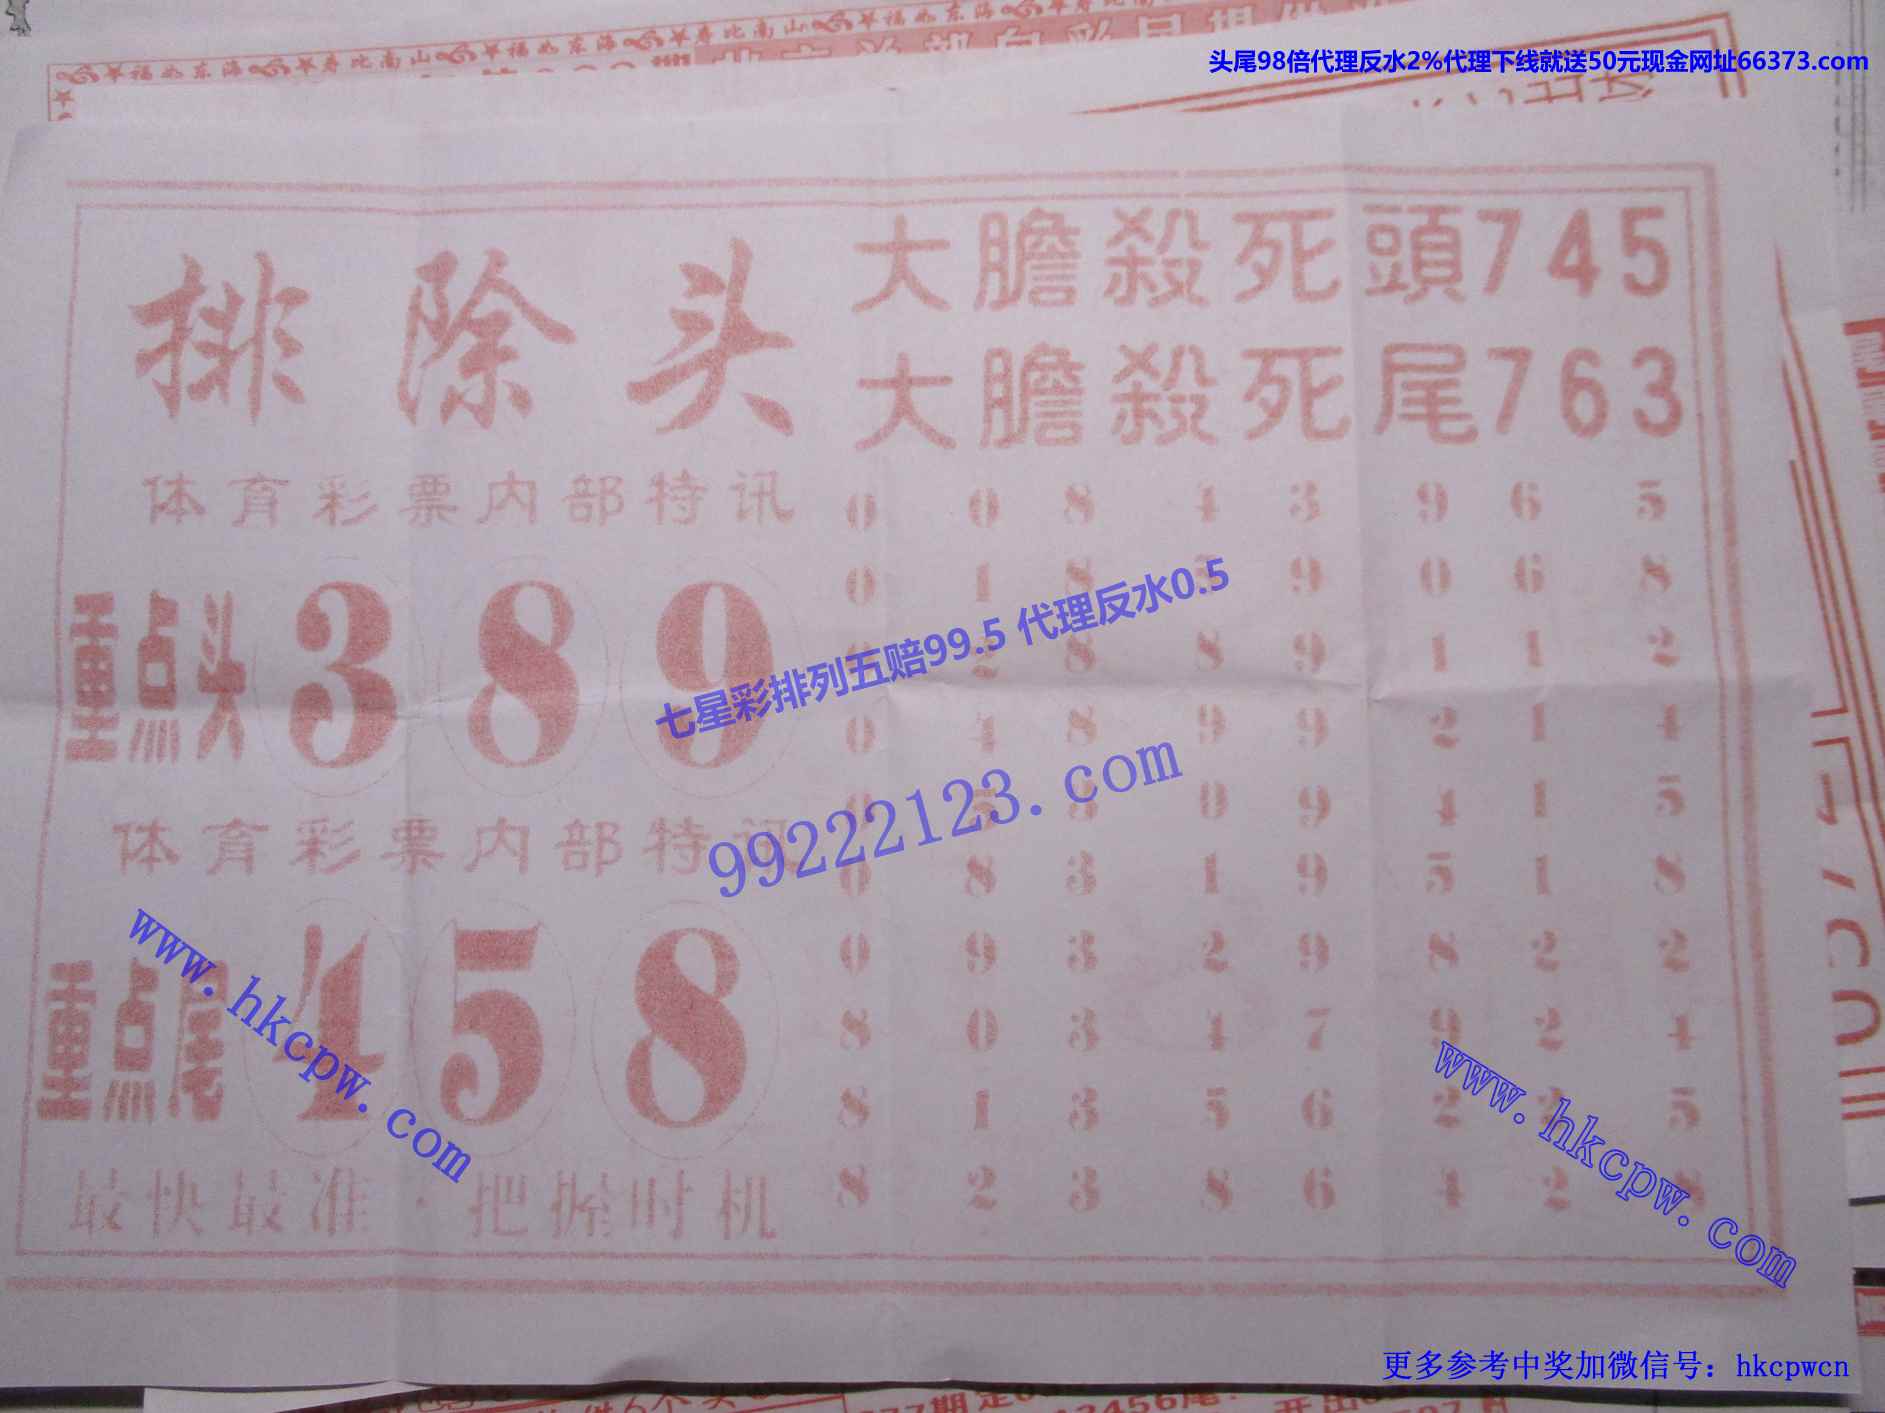 头尾98倍代理反水2%代理下线就送50元现金网址66373.com
排除头
大膽殺死頭745
大膽殺死尾763
体育彩票内部特讯
重点头 3 8 9
体育彩票内部特讯
重点尾 4 5 8
最快最准·把握时机
0 0 8 4 3 9 6 5
0 1 8 5 9 0 6 8
0 2 8 8 9 1 1 2
0 4 8 9 9 2 1 4
0 5 8 0 9 4 1 5
0 8 3 1 9 5 1 8
0 9 3 2 9 8 2 2
8 0 3 4 7 9 2 4
8 1 3 5 6 2 2 5
8 2 3 8 6 4 2 8
七星彩排列五赔99.5 代理反水0.5
99222123.com
www.hkcpw.com
www.hkcpw.com
更多参考中奖加微信号：hkcpwcn